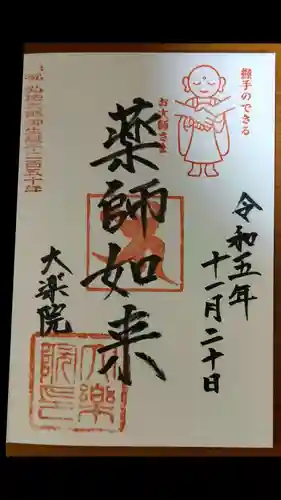 握手のできる
お大師さま
令和五年
十一月二十日
薬師如来
大楽院
大楽院印